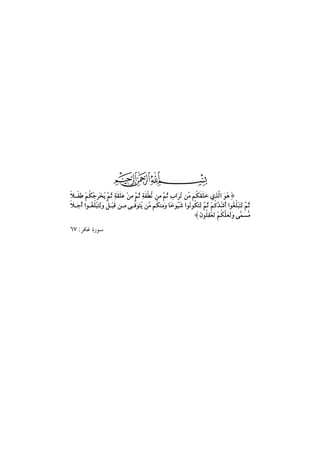 بِسْمِ اللَّهِ الرَّحْمَٰنِ الرَّحِيمِ
﴿ هُوَ الَّذِي خَلَقَكُم مِّن تُرَابٍ ثُمَّ مِن نُّطْفَةٍ ثُمَّ مِنْ عَلَقَةٍ ثُمَّ يُخْرِجُكُمْ طِفْـــلاً
ثُمَّ لِتَبْلُغُوا أَشُدَّكُمْ ثُمَّ لِتَكُونُوا شُيُوخًا وَمِنكُم مَّن يُتَوَفَّــى مِــن قَبْــلُ وَلِتَبْلُغُــوا أَجَــلاً
مُّسَمًّى وَلَعَلَّكُمْ تَعْقِلُونَ ﴾
سورة غافر: ٦٧